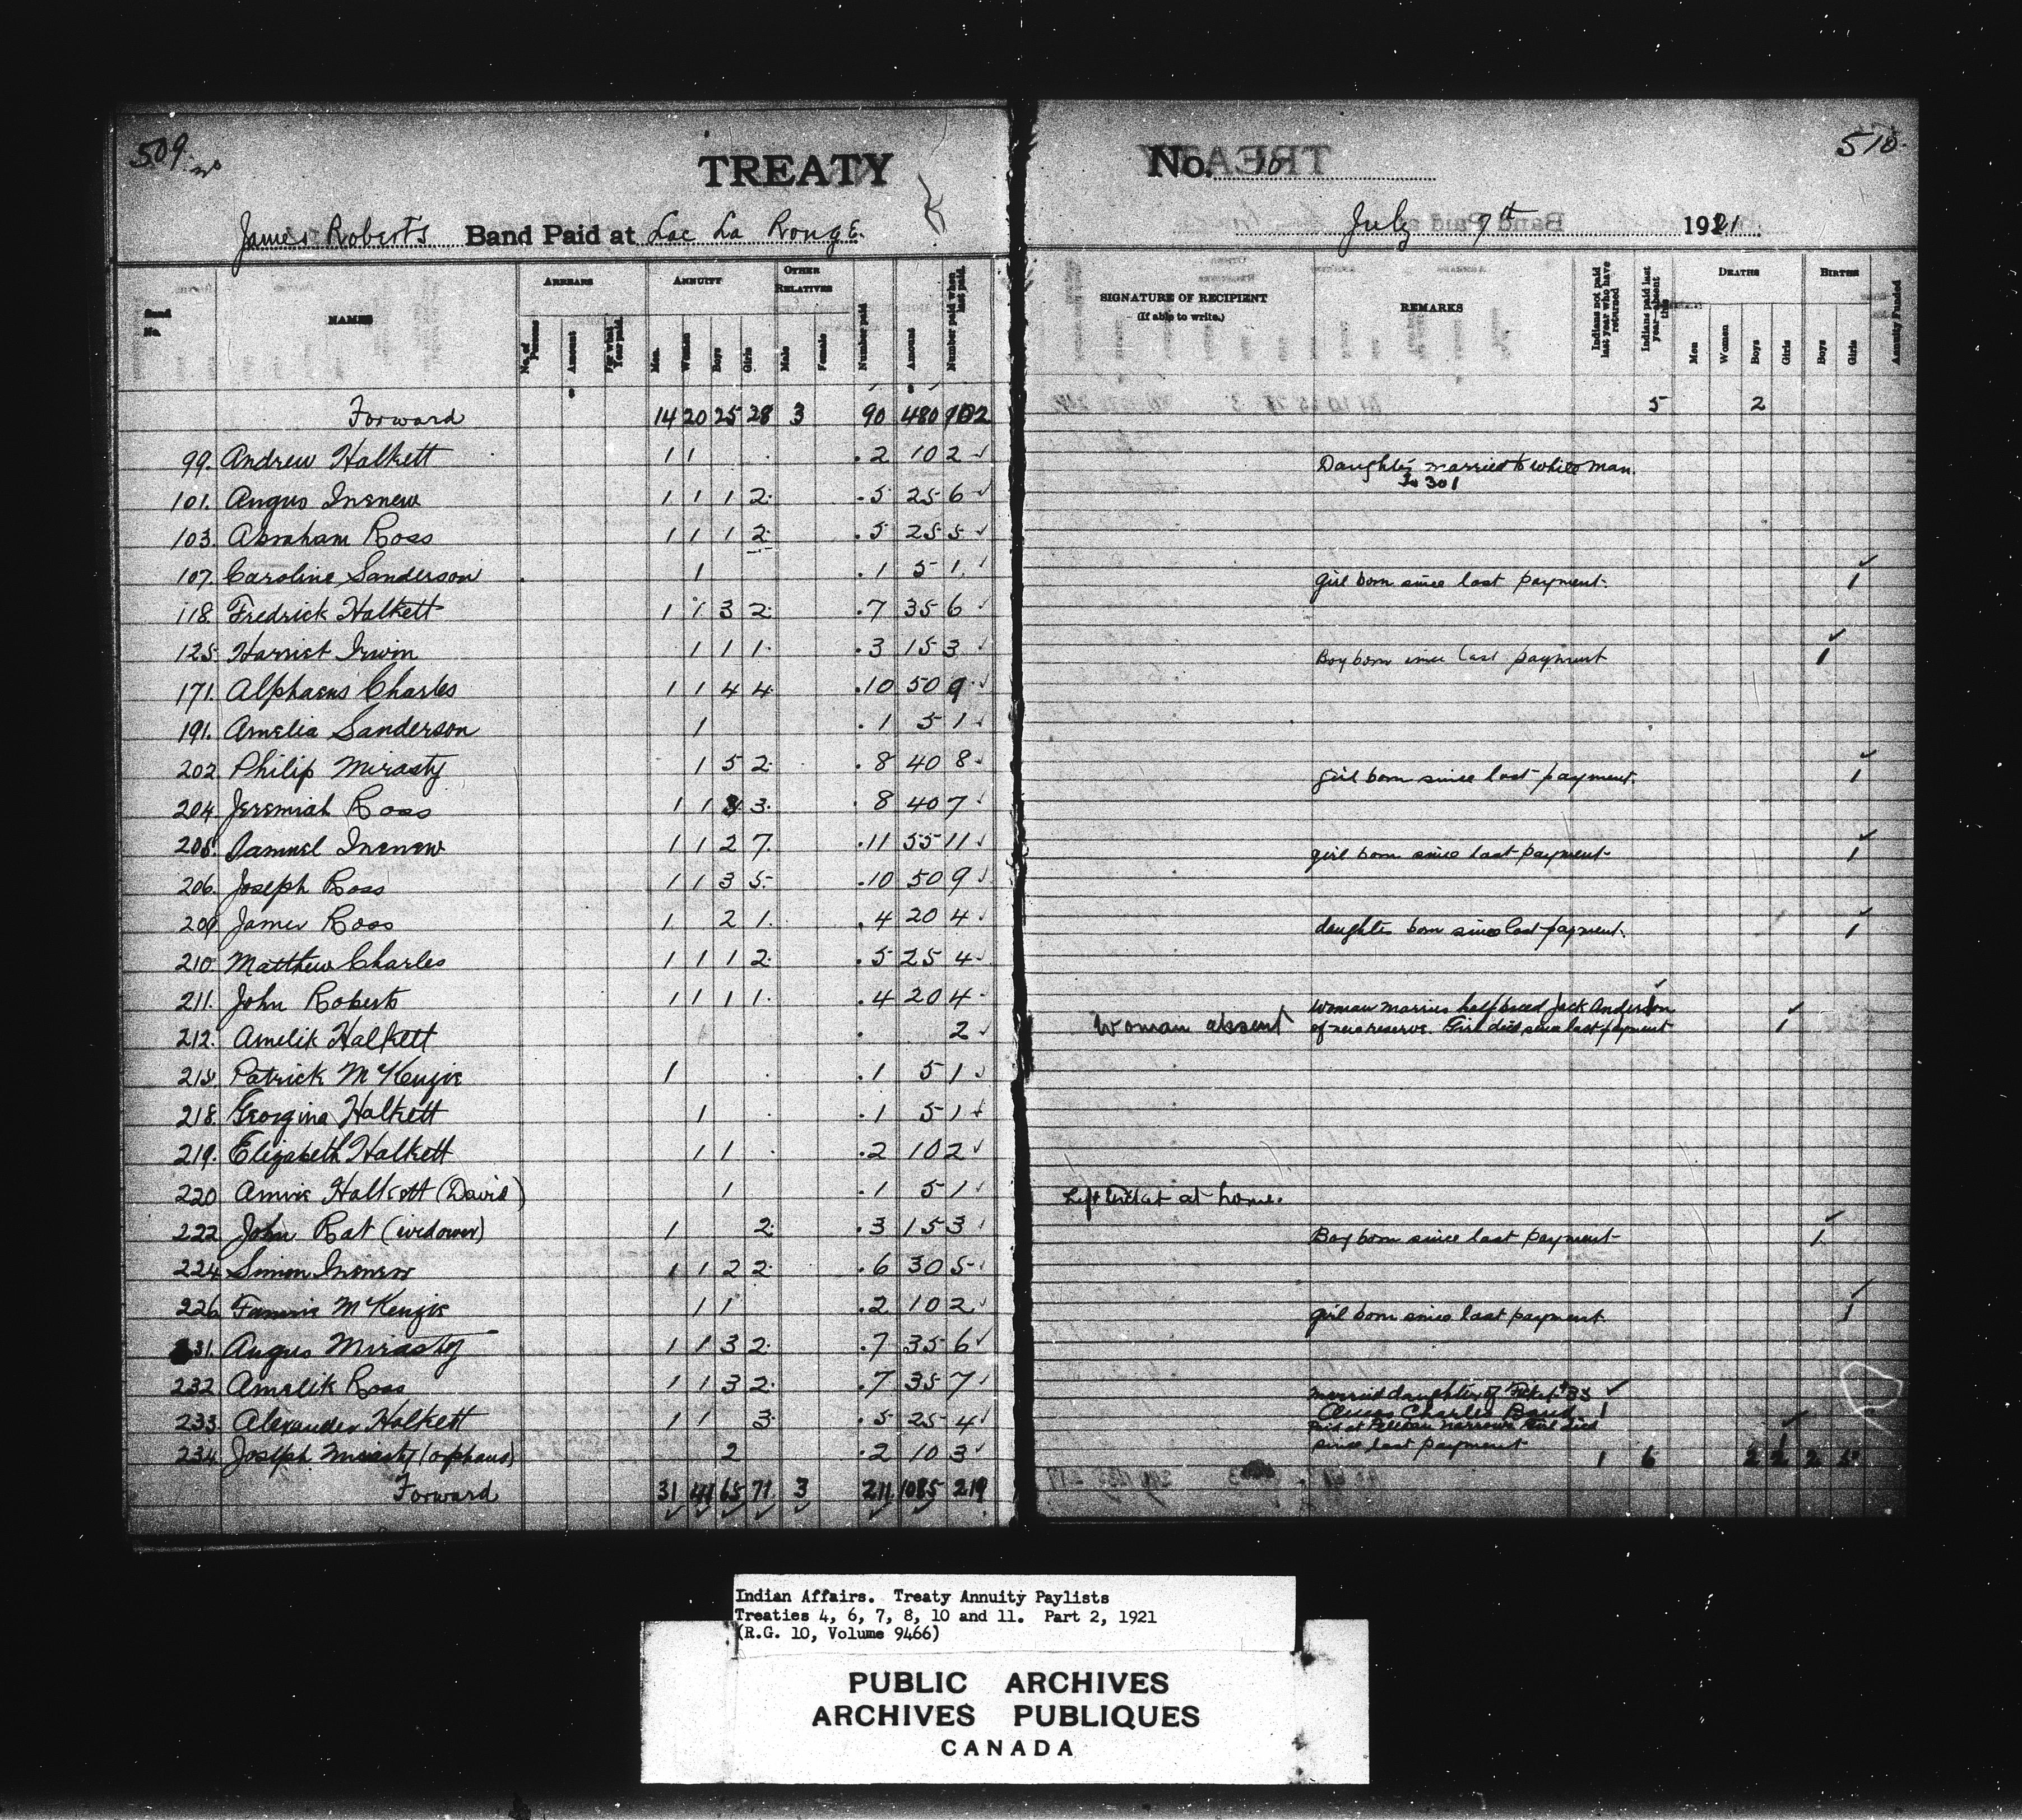 509
TREATY No. 10
510
James Roberts Band Paid at Lac La Ronge. July 7th 1921
Band No.
NAMES
ARREARS
No. of Persons
Amount
For what Year paid.
ANNUITY
Men.
Women
Boys
Girls
OTHER RELATIVES
Male
Female
Number paid
Amount
Number paid when last paid.
SIGNATURE OF RECIPIENT
(If able to write.)
REMARKS
Indians not paid last year who have returned
Indians paid last year—absent this
DEATHS
Men
Women
Boys
Girls
BIRTHS
Boys
Girls
Annuity Funded
Forward 14 20 25 28 3 90 480 102 5 2
99. Andrew Halkett 1 1 2 10 2 Daughter married to white man.
To 301
101. Angus Inenew 1 1 1 2 5 25 6
103. Abraham Ross 1 1 1 2 5 25 5
107. Caroline Sanderson 1 1 5 1 girl born since last payment. 1
118. Fredrick Halkett 1 1 3 2 7 35 6
125. Harriet Irwin 1 1 1 3 15 3 Boy born since last payment 1
171. Alphaeus Charles 1 1 4 4 10 50 9
191. Amelia Sanderson 1 1 5 1
202. Philip Mirasty 1 5 2 8 40 8 girl born since last payment. 1
204. Jeremiah Ross 1 1 3 3 8 40 7
205. Samuel Inenew 1 1 2 7 11 55 11 girl born since last payment 1
206. Joseph Ross 1 1 3 5 10 50 9
209 James Ross 1 2 1 4 20 4 daughter born since last payment. 1
210. Matthew Charles 1 1 1 2 5 25 4
211. John Roberts 1 1 1 1 4 20 4 Woman marries halfbreed Jack Anderson
212. Amelik Halkett 2 Woman absent of reserve. Girl died since last payment 1
Patrick McKenzie 1 1 5 1
218. Georgina Halkett 1 1 5 1
219. Elizabeth Halkett 1 1 2 10 2
220 Annie Halkett (David) 1 1 5 1 Left ticket at home.
222 John Rat (widower) 1 2 3 15 3 Boy born since last payment 1
224 Simon Inenew 1 1 2 2 6 30 5
226. Fannie McKenzie 1 1 2 10 2 girl born since last payment 1
231. Angus Mirasty 1 1 3 2 7 35 6
232 Amelik Ross 1 1 3 2 7 35 7 Married daughter of Ticket #33
233. Alexander Halkett 1 1 3 5 25 4 Amos Charles Band 1
Paid at Pelican Narrows. Girl died
234. Joseph Mirasty (orphans) 2 2 10 3 since last payment 1 6 2 2 2 5
Forward 31 41 65 71 3 211 1085 219
Indian Affairs. Treaty Annuity Paylists
Treaties 4, 6, 7, 8, 10 and 11. Part 2, 1921
(R.G. 10, Volume 9466)
PUBLIC ARCHIVES
ARCHIVES PUBLIQUES
CANADA